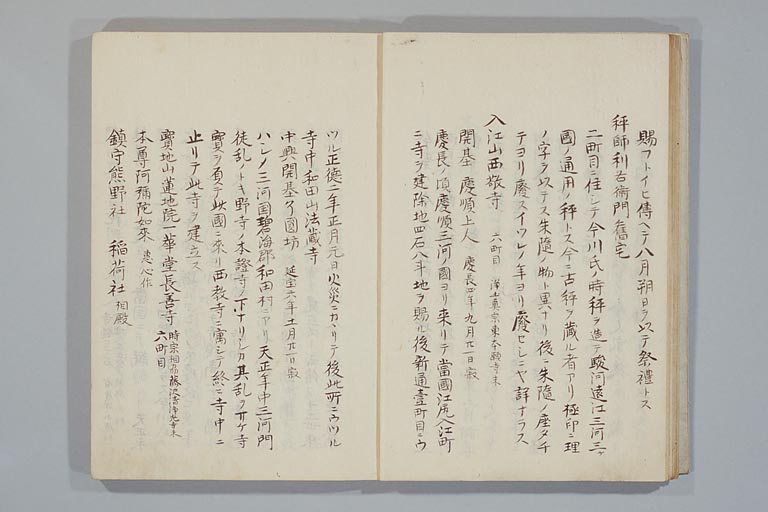 賜フトイヒ傳ヘテ八月朔日ヲ以テ祭禮トス
秤師利右衛門舊宅
二町目ニ住シテ今川氏ノ時秤ヲ造テ駿河遠江三河三ヶ
國ノ通用ノ秤トス今ニ古秤ヲ蔵ル者アリ極印ニ理
ノ字ヲ以テス朱隨ノ物ト異ナリ後ニ朱隨ノ座タチ
テヨリ廢スイツレノ年ヨリ廢セシニヤ詳ナラス
入江山西敬寺 六町目 淨土真宗東本願寺末
開基 慶順上人 慶長四年九月廿一日寂
慶長ノ頃慶順三河ノ國ヨリ来リテ當國江尻入江町
ニ寺ヲ建除地四石八斗地ヲ賜ル後新通壹町目ニウ
ツル正徳二年正月元日火災ニカヽリテ後此所ニウツル
寺中和田山法蔵寺
中興開基了圓坊 延宝六年十一月廿一日寂
ハシメ三河国碧海郡和田村ニアリ天正年中三河門
徒乱ノトキ野寺ノ本證寺ノ下ナリシカ其乱ヲサケ寺
寳ヲ負テ此國ニ來リ西敎寺ニ寓シテ終ニ寺中ニ
止リテ此寺ヲ建立ス
寳地山蓮地院一華堂長善寺 時宗相刕藤沢清浄光寺末 六町目
本尊阿彌陀如來 恵心作
鎮守熊野社 稲荷社 相殿